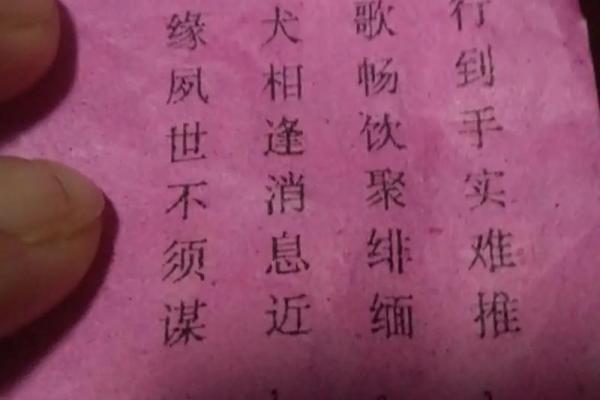 行到手实难推
歌畅饮聚绯缅
犬相逢消息近
缘夙世不须谋